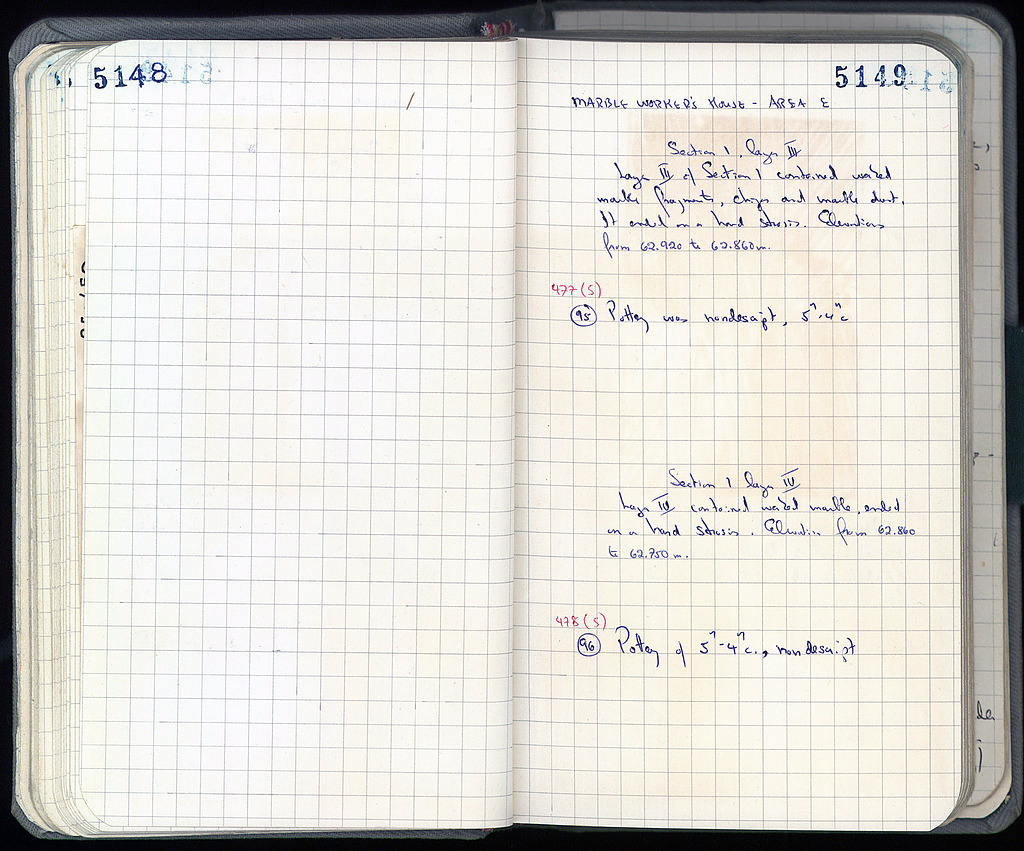 5148
5149
MARBLE WORKER'S HOUSE - AREA E
Section 1, layer III
Layer III of Section 1 contained worked
marble fragments, chips and marble dust.
It ended on a hard strosis. Elevations
from 62.920 to 62.860 m.
477 (S)
95 Pottery was nondescript, 5th-4th c
Section 1 layer IV
Layer IV contained worked marble, ended
on a hard strosis. Elevation from 62.860
to 62.750 m.
478 (S)
96 Pottery of 5th-4th c., nondescript